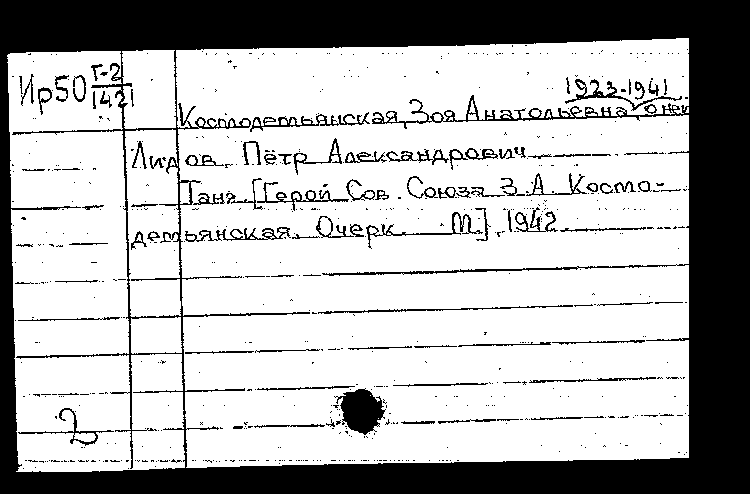 Ир50 Г-2
1421
1923-1941
Космодемьянская, Зоя Анатольевна, о ней
Лидов, Пётр Александрович
Таня. [Герой Сов. Союза З.А. Космо-
демьянская. Очерк. М], 1942.
2